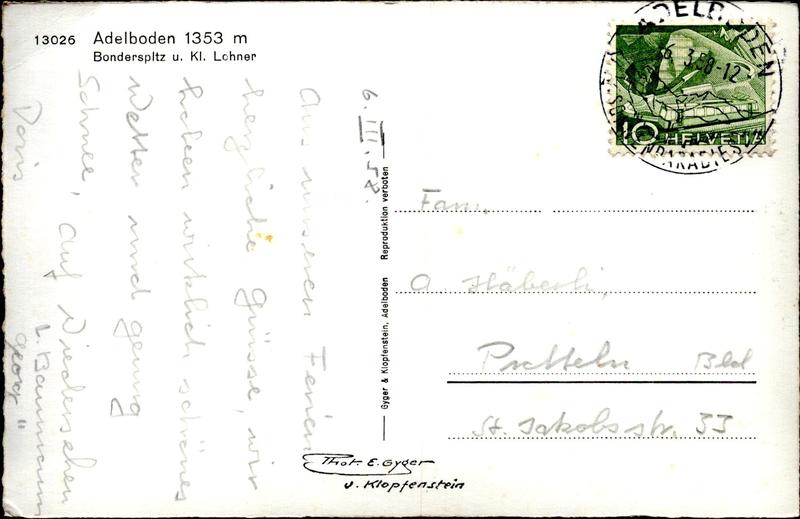 13026 Adelboden 1353 m
Bonderspitz u. Kl. Lohner
6. III. 58.
Aus unseren Ferien
herzliche Grüsse, wir
haben wirklich schönes
Wetter und genug
Schnee, auf Wiedersehen
L. Baumann
Doris Georg "
Reproduktion verboten
Gyger & Klopfenstein, Adelboden
Phot. E. Gyger
u. Klopfenstein
ADELBODEN
6. 3.58-12
10 HELVETIA
Fam.
A. Häberli,
Pratteln Bld
St. Jakobsstr. 33